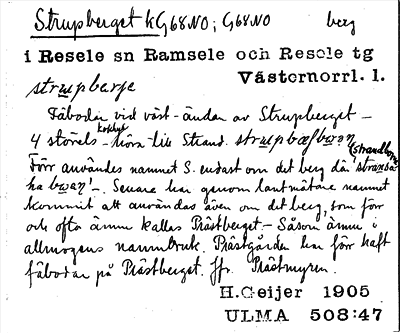 Strupberget k G68NO; G68NO berg
i Resele sn Ramsele och Resele tg
Västernorrl. l.
strupbärje
Fäbodar vid väst-ändan av Strupberget –
4 störels- hör till Strand.
Förr användes namnet S. endast om det berg där
ha – . Senare har genom lantmätare namnet
kommit att användas även om det berg, som förr
och ofta ännu kallas Prästberget – Såsom ännu i
allmogens namnbruk. Prästgården har förr haft
fäbodar på Prästberget. Jfr. Prästmyren.
H.Geijer 1905
ULMA 508:47